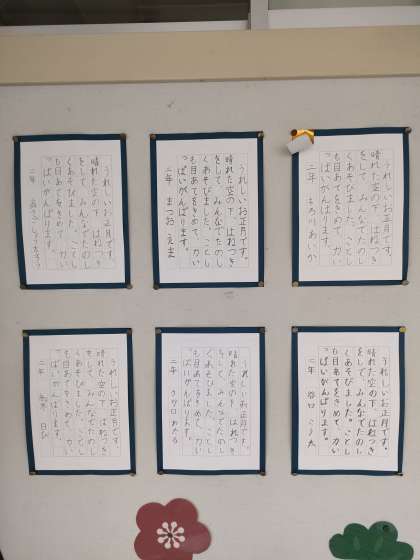 うれしいお正月です。
晴れた空の下、はねつき
をして、みんなでたのし
くあそびました。ことし
も目あてをきめて、力い
っぱいがんばります。
二年
うれしいお正月です。
晴れた空の下、はねつき
をして、みんなでたのし
くあそびました。ことし
も目あてをきめて、力い
っぱいがんばります。
二年 まつお えま
うれしいお正月です。
晴れた空の下、はねつき
をして、みんなでたのし
くあそびました。ことし
も目あてをきめて、力い
っぱいがんばります。
二年
うれしいお正月です。
晴れた空の下、はねつき
をして、みんなでたのし
くあそびました。ことし
も目あてをきめて、力い
っぱいがんばります。
二年 谷口
うれしいお正月です。
晴れた空の下、はねつき
をして、みんなでたのし
くあそびました。ことし
も目あてをきめて、力い
っぱいがんばります。
二年
うれしいお正月です。
晴れた空の下、はねつき
をして、みんなでたのし
くあそびました。ことし
も目あてをきめて、力い
っぱいがんばります。
二年